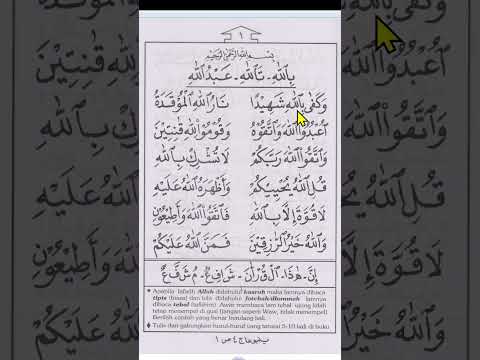 ١
بِسْمِ اللهِ الرَّحْمٰنِ الرَّحِيْمِ
بِاللهِ - تَاللهِ - عَبْدُ اللهِ
وَكَفٰى بِاللهِ شَهِيْدًا نَارُ اللهِ الْمُوْقَدَةُ
اُعْبُدُوا اللهَ وَاتَّقُوْهُ وَقُوْمُوْا لِلهِ قٰنِتِيْنَ
وَاتَّقُوا اللهَ رَبَّكُمْ لَا تُشْرِكْ بِاللهِ
قُلِ اللهُ يُحْيِيْكُمْ وَاَظْهَرَهُ اللهُ عَلَيْهِ
لَا قُوَّةَ اِلَّا بِاللهِ فَاتَّقُوا اللهَ وَاَطِيْعُوْنِ
وَاللهُ خَيْرُ الرّٰزِقِيْنَ فَمَنَّ اللهُ عَلَيْكُمْ
اِنَّ - هٰذَا - الْقُرْاٰنَ - شَافِعٌ - مُشَفَّعٌ
Apabila lafadh Allah didahului kasroh maka lamnya dibaca
tipis (biasa) dan bila didahului fatchah/dlommah lamnya
dibaca tebal (tafkhim). Awas membaca lam tebal ujung lidah
tetap menempel di gusi (jangan seperti Waw, tidak menempel)
Berilah contoh yang benar berulang kali.
Tulis dan gabungkan huruf-huruf (yang terurai 5-10 kali) di buku